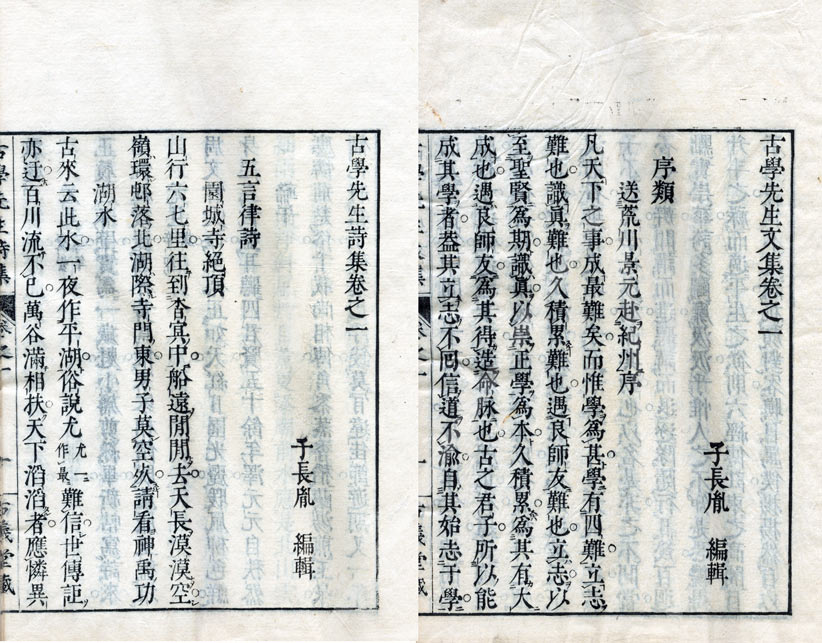 古學先生文集卷之一
子長胤 編輯
序類
送荒川景元赴紀州序
凡天下之事成最難矣而惟學爲甚學有四難立志
難也識眞難也久積累難也遇良師友難也立志以
至聖賢爲期識眞以崇正學爲本久積累爲其有大
成也遇良師友爲其得造命脉也古之君子所以能
成其學者葢其立志不回信道不渝自其始志于學
古學先生詩集卷之一
子長胤 編輯
五言律詩
園城寺絕頂
山行六七里往到杳冥中船遠閒閒去天長漠漠空
嶺環邨落北湖際寺門東男子莫空請看神禹功
湖水
古來云此水一夜作平湖俗說尤尤一作最難信世傳詎
亦迂百川流不已萬谷滿相扶天下滔滔者應憐異
古學先生詩集 卷之一 古義堂藏